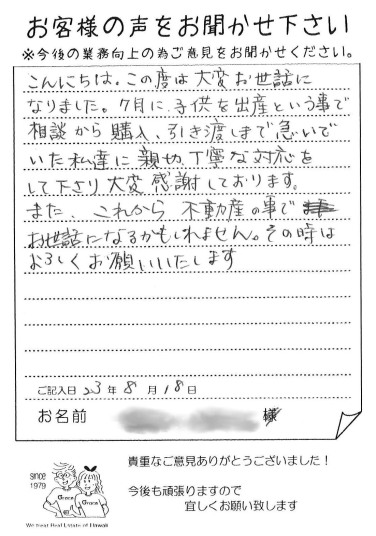 お客様の声をお聞かせ下さい
※今後の業務向上の為ご意見をお聞かせください。
こんにちは。この度は大変お世話に
なりました。7月に、子供を出産という事で
相談から購入、引き渡しまで急いで
いた私達に親切、丁寧な対応を
して下さり大変感謝しております。
また、これから不動産の事で
お世話になるかもしれません。その時は
よろしくお願いいたします
ご記入日 23年 8月 18日
お名前 様
貴重なご意見ありがとうございました！
今後も頑張りますので
宜しくお願い致します
since
1979
Grace
Grace
We treat Real Estate of Hawaii